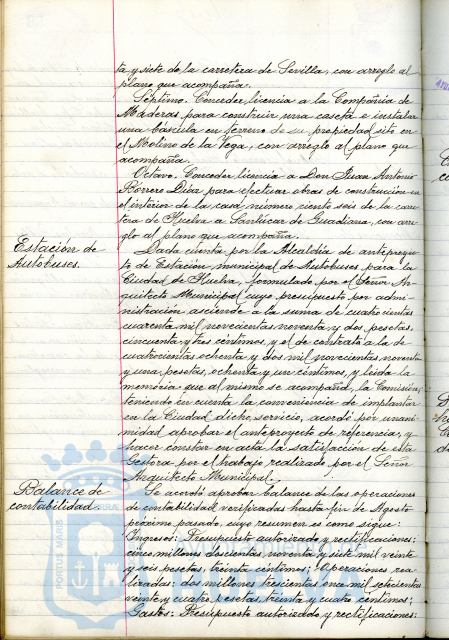 ta y siete de la carretera de Sevilla, con arreglo al
plano que acompaña.
Séptimo. Conceder licencia a la Compañía de
Maderas para construir una caseta e instalar
una báscula en terreno de su propiedad sito en
el Molino de la Vega, con arreglo al plano que
acompaña.
Octavo. Conceder licencia a Don Juan Antonio
Borrero Díaz para efectuar obras de construcción en
el interior de la casa número ciento seis de la carre
tera de Huelva a Sanlúcar de Guadiana, con arre
glo al plano que acompaña.
Estación de
Autobuses.
Dada cuenta por la Alcaldía de anteproyec
to de Estación municipal de Autobuses para la
Ciudad de Huelva, formulado por el Señor Ar
quitecto Municipal cuyo presupuesto por admi
nistración asciende a la suma de cuatrocientas
cuarenta mil novecientas noventa y dos pesetas,
cincuenta y tres céntimos, y el de contrato a la de
cuatrocientas ochenta y dos mil novecientas noventa
y una pesetas, ochenta y un céntimos, y leída la
memoria que al mismo se acompaña, la Comisión,
teniendo en cuenta la conveniencia de implantar
en la Ciudad dicho servicio, acordó por unani
midad aprobar el anteproyecto de referencia, y
hacer constar en acta la satisfacción de esta
Gestora por el trabajo realizado por el Señor
Arquitecto Municipal.
Balance de
contabilidad.
Se acordó aprobar balance de las operaciones
de contabilidad verificadas hasta fin de Agosto
próximo pasado, cuyo resumen es como sigue:
Ingresos: Presupuesto autorizado y rectificaciones:
cinco millones doscientas noventa y siete mil veinte
y seis pesetas, treinta céntimos; Operaciones rea
lizadas: dos millones trescientas once mil setecientas
veinte y cuatro pesetas, treinta y cuatro céntimos;
Gastos: Presupuesto autorizado y rectificaciones:
PORTUS MARIS